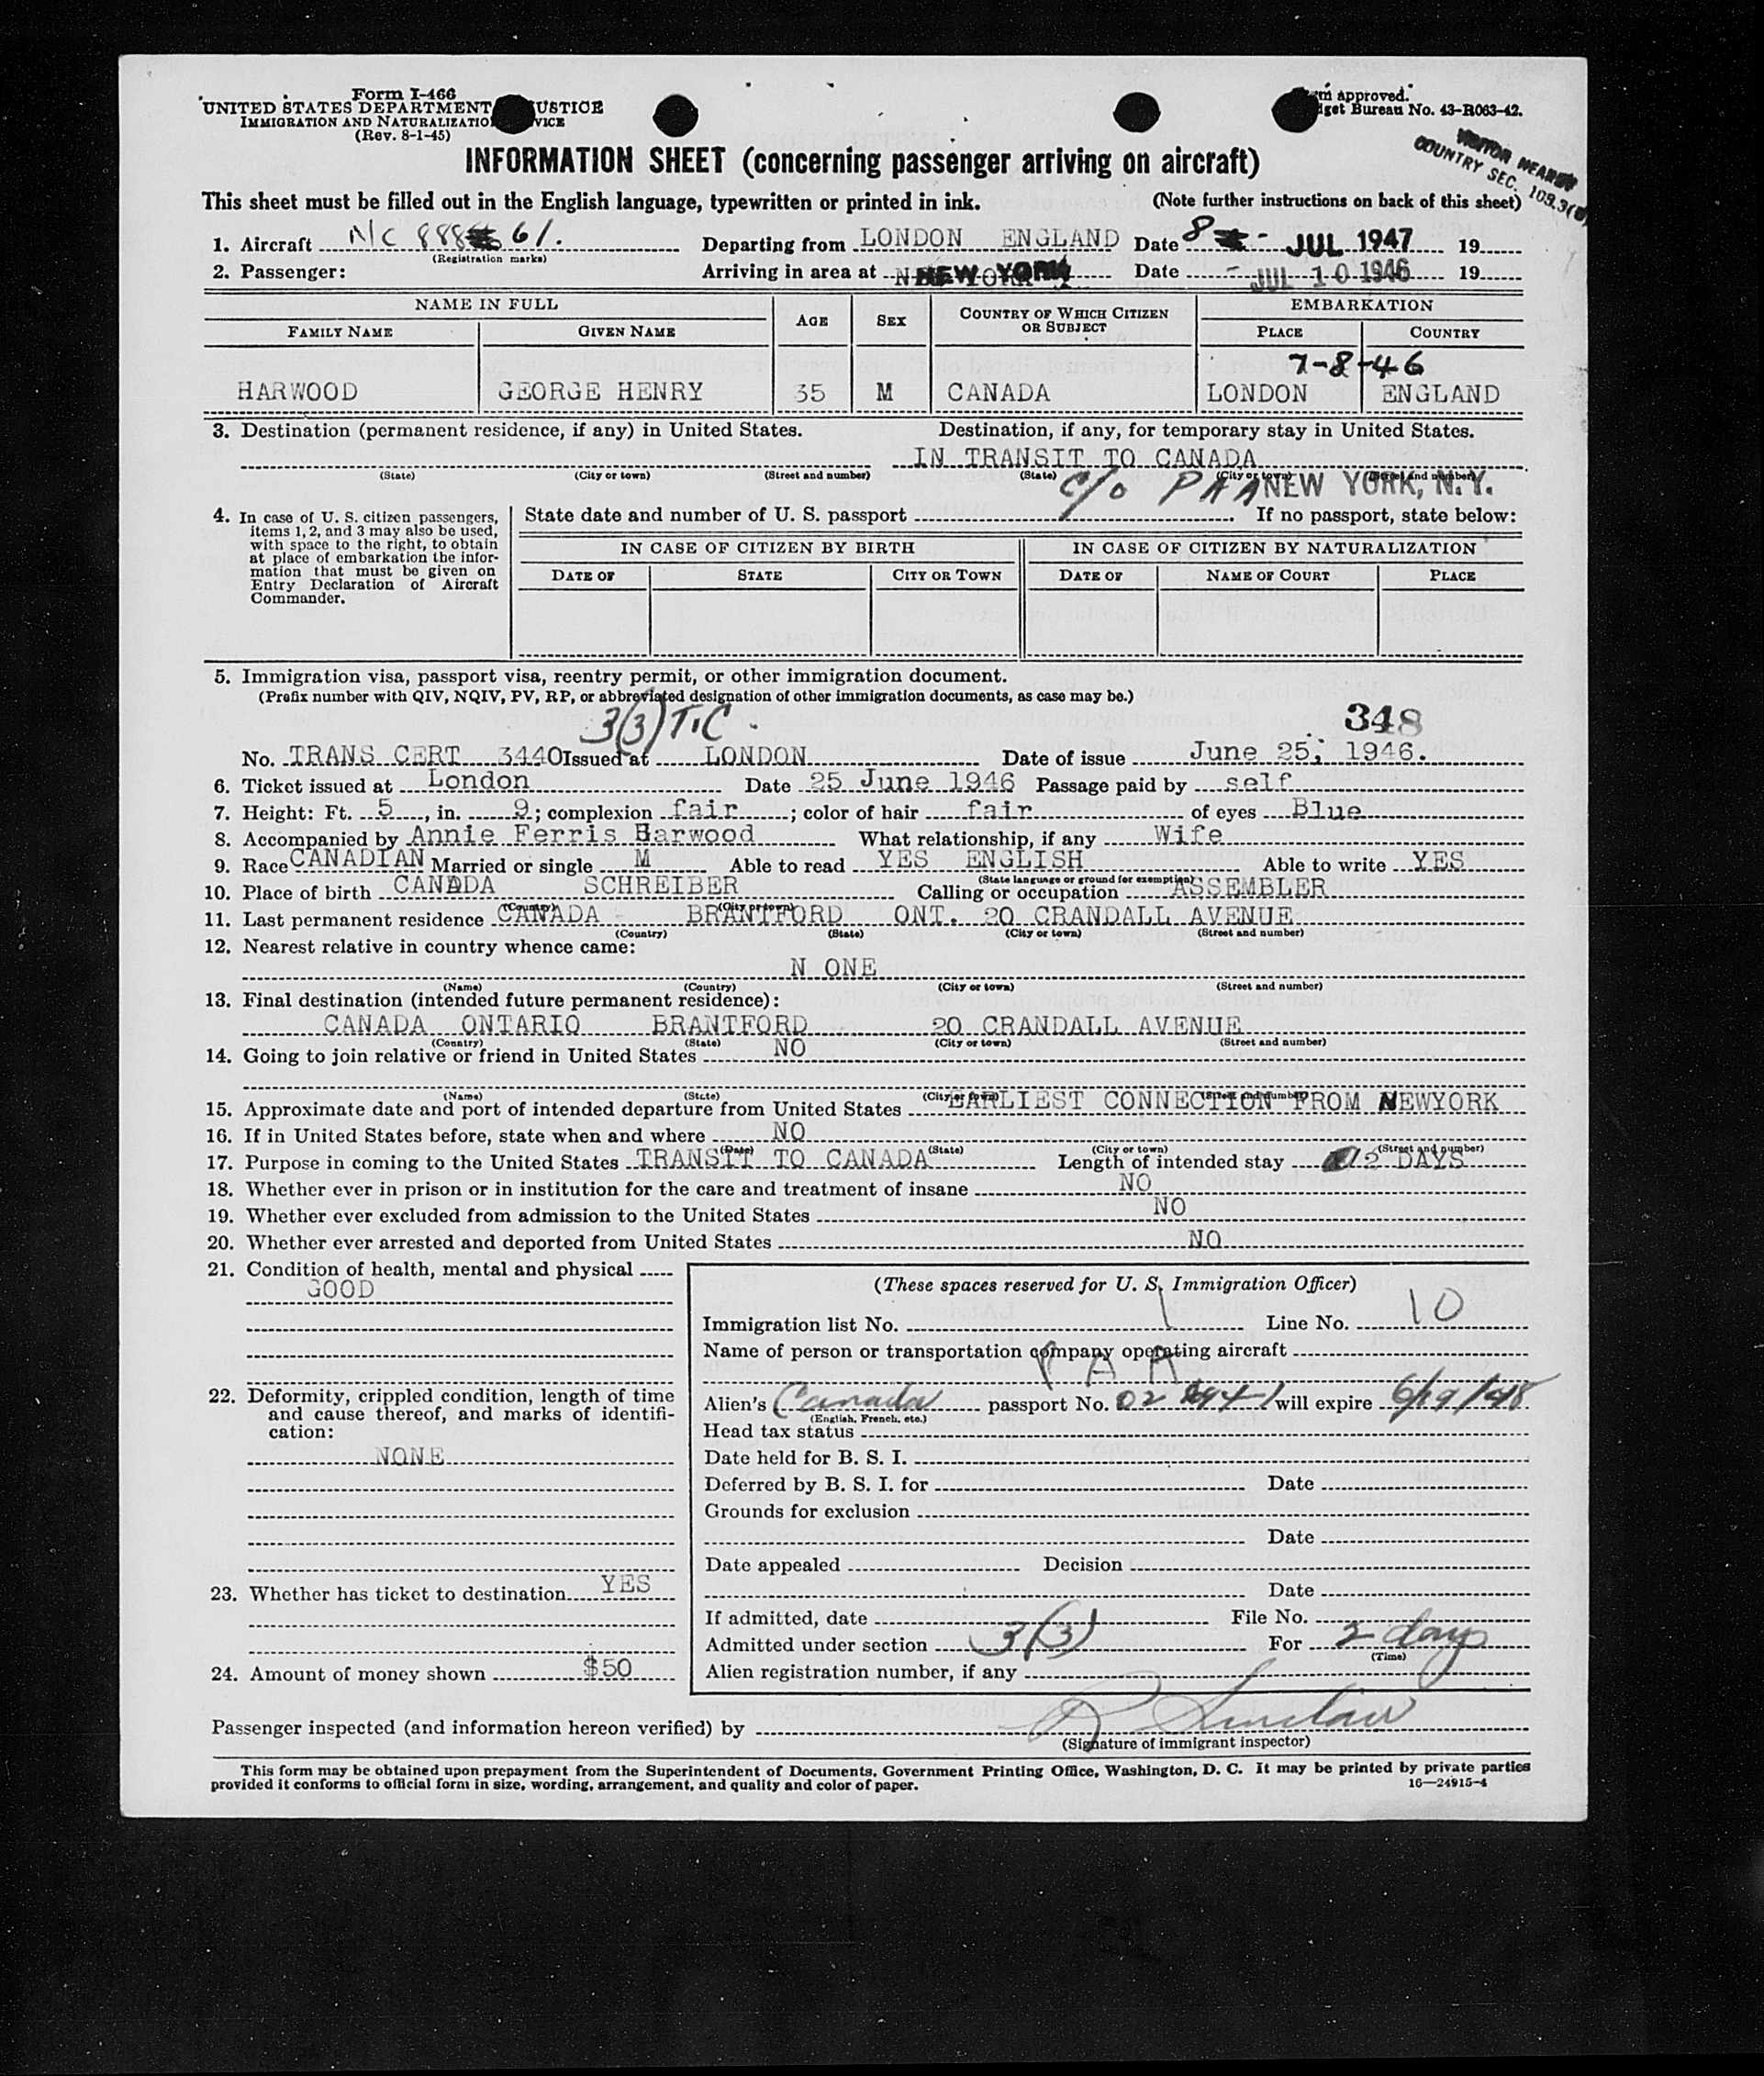 Form I-466
UNITED STATES DEPARTMENT USTICE
IMMIGRATION AND NATURALIZATIO VICE
(Rev. 8-1-45)
m approved.
get Bureau No. 43-R063-42.
COUNTRY SEC.
INFORMATION SHEET (concerning passenger arriving on aircraft)
This sheet must be filled out in the English language, typewritten or printed in ink. (Note further instructions on back of this sheet)
1. Aircraft N/C 888 61. Departing from LONDON ENGLAND Date 8 - JUL 1947 19
(Registration marks)
2. Passenger: Arriving in area at NEW YORK Date - JUL 10 1946 19
NAME IN FULL AGE SEX COUNTRY OF WHICH CITIZEN OR SUBJECT EMBARKATION
FAMILY NAME GIVEN NAME PLACE COUNTRY
7-8-46
HARWOOD GEORGE HENRY 35 M CANADA LONDON ENGLAND
3. Destination (permanent residence, if any) in United States. Destination, if any, for temporary stay in United States.
IN TRANSIT TO CANADA
(State) (City or town) (Street and number) (State) (City or town) (Street and number)
C/o PAA NEW YORK, N.Y.
4. In case of U. S. citizen passengers, items 1, 2, and 3 may also be used, with space to the right, to obtain at place of embarkation the information that must be given on Entry Declaration of Aircraft Commander.
State date and number of U. S. passport . If no passport, state below:
IN CASE OF CITIZEN BY BIRTH IN CASE OF CITIZEN BY NATURALIZATION
DATE OF STATE CITY OR TOWN DATE OF NAME OF COURT PLACE
5. Immigration visa, passport visa, reentry permit, or other immigration document.
(Prefix number with QIV, NQIV, PV, RP, or abbreviated designation of other immigration documents, as case may be.)
3(3) TIC 348
No. TRANS CERT 3440 Issued at LONDON Date of issue June 25, 1946.
6. Ticket issued at London Date 25 June 1946 Passage paid by self
7. Height: Ft. 5, in. 9; complexion fair; color of hair fair of eyes Blue
8. Accompanied by Annie Ferris Harwood What relationship, if any Wife
9. Race CANADIAN Married or single M Able to read YES ENGLISH Able to write YES
(State language or ground for exemption)
10. Place of birth CANADA SCHREIBER Calling or occupation ASSEMBLER
(Country) (City or town)
11. Last permanent residence CANADA BRANTFORD ONT. 20 CRANDALL AVENUE
(Country) (State) (City or town) (Street and number)
12. Nearest relative in country whence came:
N ONE
(Name) (Country) (City or town) (Street and number)
13. Final destination (intended future permanent residence):
CANADA ONTARIO BRANTFORD 20 CRANDALL AVENUE
(Country) (State) (City or town) (Street and number)
14. Going to join relative or friend in United States NO
(Name) (State) (City or town) (Street and number)
15. Approximate date and port of intended departure from United States EARLIEST CONNECTION FROM NEWYORK
16. If in United States before, state when and where NO
(Date) (State) (City or town) (Street and number)
17. Purpose in coming to the United States TRANSIT TO CANADA Length of intended stay 2 DAYS
18. Whether ever in prison or in institution for the care and treatment of insane NO
19. Whether ever excluded from admission to the United States NO
20. Whether ever arrested and deported from United States NO
21. Condition of health, mental and physical
GOOD
22. Deformity, crippled condition, length of time and cause thereof, and marks of identification:
NONE
23. Whether has ticket to destination YES
24. Amount of money shown $50
(These spaces reserved for U. S. Immigration Officer)
Immigration list No. 1 Line No. 10
Name of person or transportation company operating aircraft
P A A
Alien's Canada passport No. will expire 6/19/48
(English, French, etc.)
Head tax status
Date held for B. S. I.
Deferred by B. S. I. for Date
Grounds for exclusion
Date
Date appealed Decision
Date
If admitted, date File No.
Admitted under section 3(3) For 2 days
(Time)
Alien registration number, if any
Passenger inspected (and information hereon verified) by
(Signature of immigrant inspector)
This form may be obtained upon prepayment from the Superintendent of Documents, Government Printing Office, Washington, D. C. It may be printed by private parties
provided it conforms to official form in size, wording, arrangement, and quality and color of paper. 16—24915-4